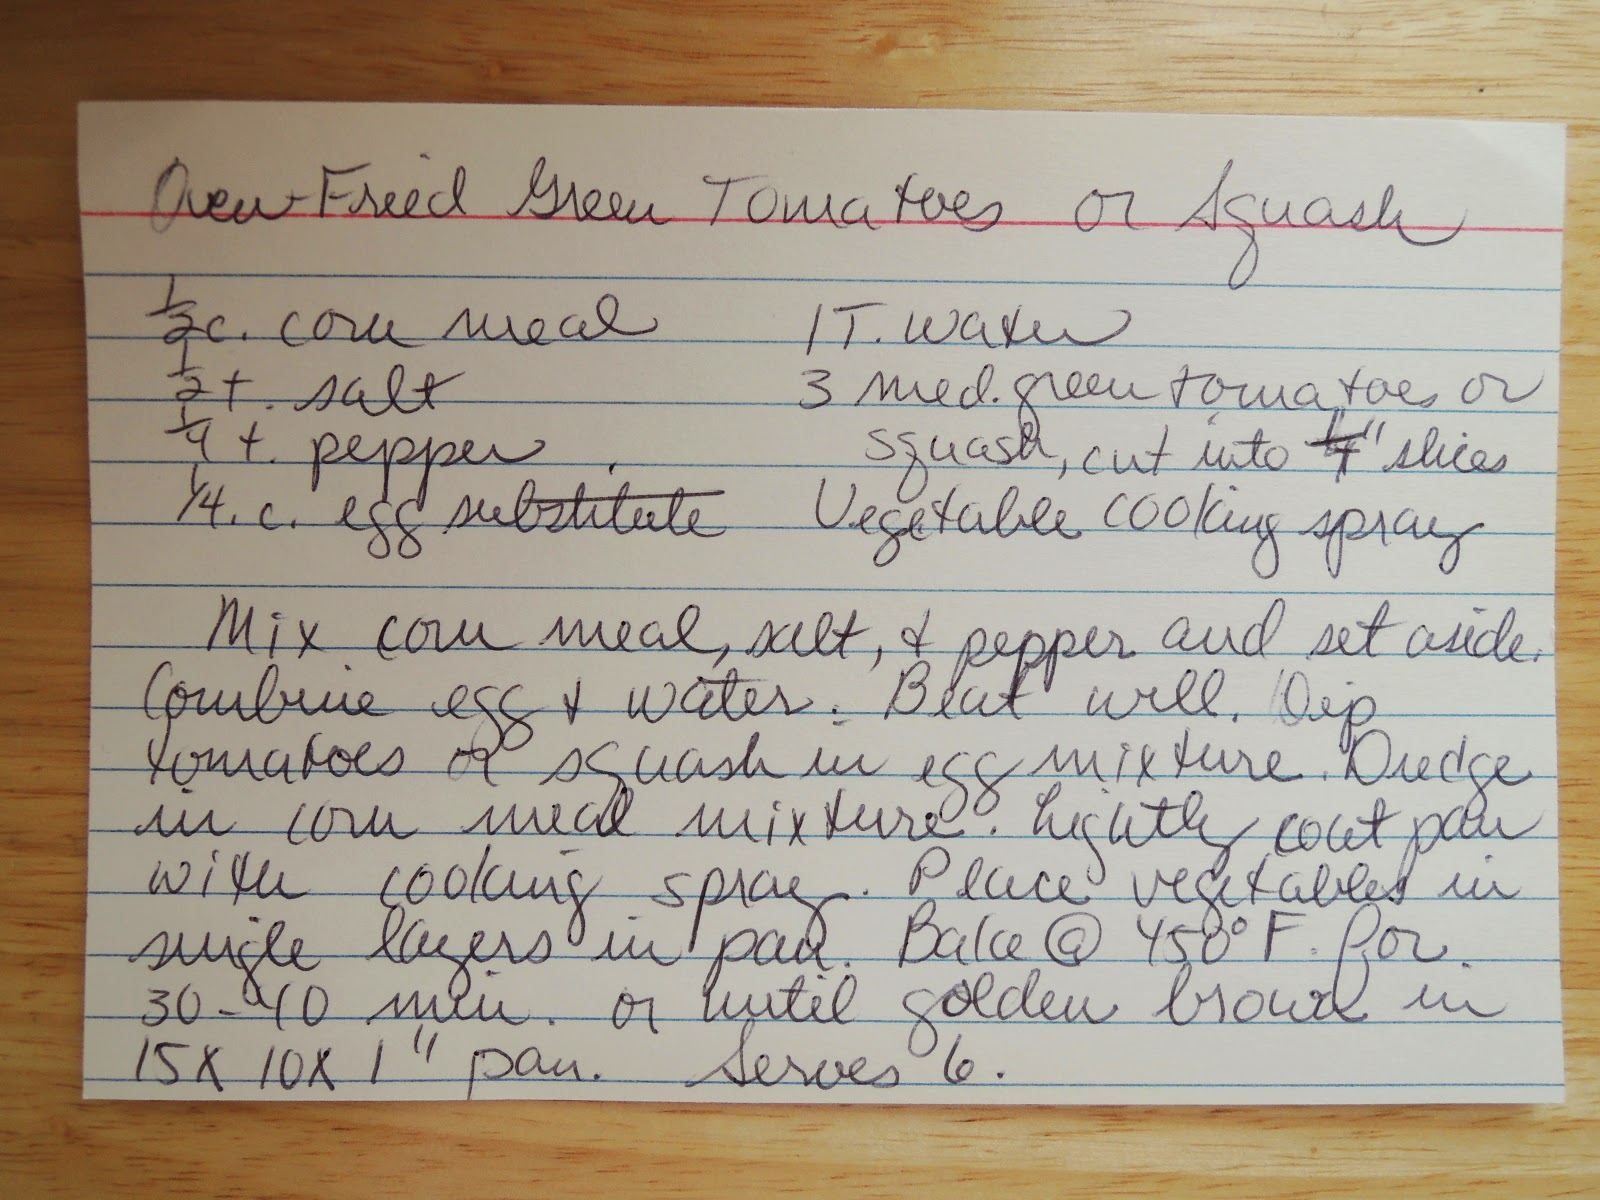 Oven-Fried Green Tomatoes or Squash
1/2 c. corn meal
1/2 t. salt
1/4 t. pepper
1/4 c. egg substitute
1 T. water
3 med. green tomatoes or
squash, cut into 1/4" slices
Vegetable cooking spray
Mix corn meal, salt, & pepper and set aside.
Combine egg & water. Beat well. Dip
tomatoes or squash in egg mixture. Dredge
in corn meal mixture. Lightly coat pan
with cooking spray. Place vegetables in
single layers in pan. Bake @ 450° F. for
30-40 min. or until golden brown in
15 x 10 x 1" pan. Serves 6.